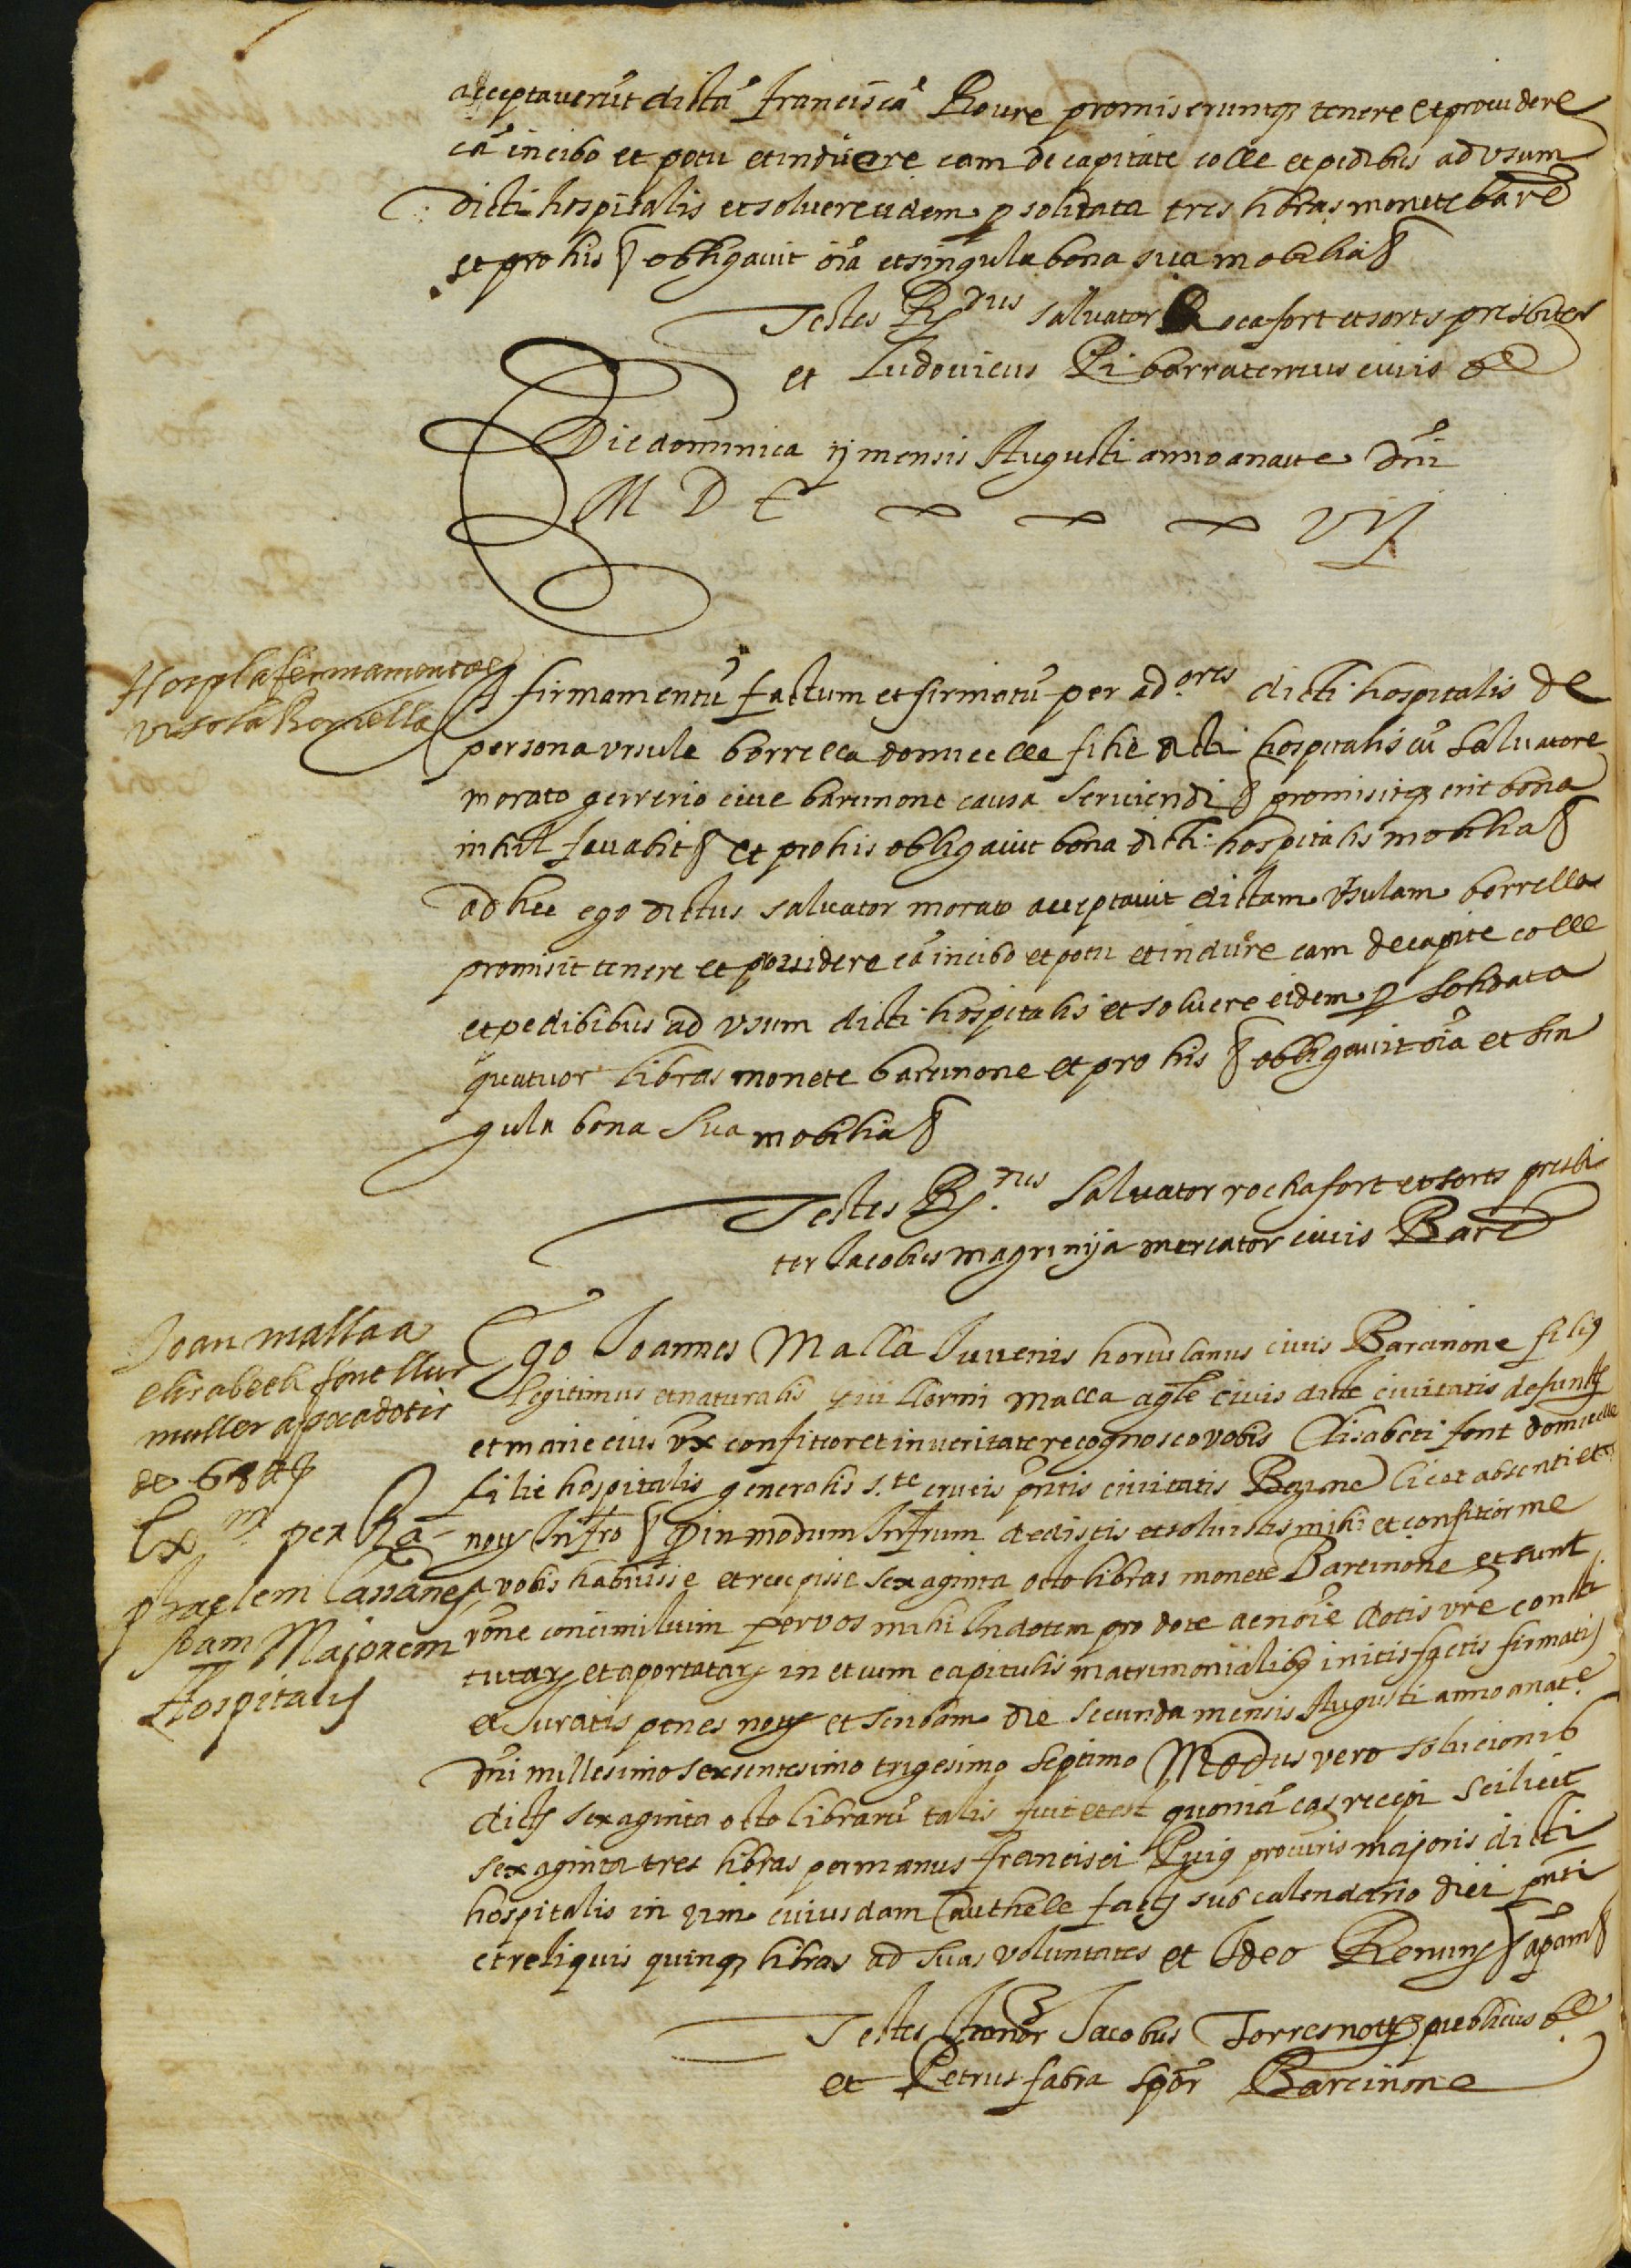 acceptaverūt dictā franciscā Roure promiseruntq3 tenere et providere
eā in cibo et potu et induere eam de capitate colle et pedibus ad usum
dicti hospitalis et solvere eidem p solidata tres libras monete barẽ
et pro his § obligavit oīa et singula bona sua mobilia §
Testes Rdus salvator Rocafort et sorts presbiter
et Ludovicus Pi barraterrius civis bẽ
Die dominica ij mensis Augusti anno a natte dñi
M D C xxx vij
Hospl a fermament de
ursola Borrella
Firmamentū factum et firmatū per ad.ores dicti hospitalis de
persona ursule borrella domicelle filie dicti hospitalis cū salvatore
morato gerrerio cive barcinone causa serviendi § promisitq3 erit bona
nihil favabit § et pro his obligavit bona dicti hospitalis mobilia §
ad hec ego dictus salvator morato acceptavit dictam ursulam borrella
promisit tenere et providere eā in cibo et potu et induere eam de capite colle
et pedibibus ad usum dicti hospitalis et solvere eidem p solidata
quatuor libras monete barcinone et pro his § obligavit oīa et sin
gula bona sua mobilia §
Testes R.dus salvator rochafort et sorts presbi
ter Jacobus magrinya mercator civis Barẽ
Joan malla a
elisabeth font llur
muller apocadotis
de 68 ll
Ex.m per Ra-
phaelem Cassanes
scam Majorem
Hospitalis
Ego Joannes Malla Juvenis hortulanus civis Barcinone filiȝ
legitimus et naturalis qui llormi malla agle civis dicte civitatis defuncti
et marie eius ux confiteor et in veritate recognosco vobis Elisabeti font domicelle
filie hospitalis generalis s.te crucis pñtis civitatis Barẽne licet absenti et
noty Infro § q in modum Infrum dedistis et solvistis mihi et confiteor me
a vobis habuisse et recepisse sexaginta octo libras monete Barcinone et sunt
rōne consimilium per vos mihi In dotem pro dote ac noīe dotis vrẽ consti
tutar et aportatar in et cum capitulis matrimonialibȝ initis factis firmatis
et Juratis penes noty et scribam die secunda mensis Augusti anno a nate
dñi millesimo sexsentesimo trigesimo septimo Modus vero solucionis
dictȝ sexaginta octo librarū talis fuit et est quoniā eas recepi scilicet
sexaginta tres libras per manus francisci Puig procuris majoris dicti
hospitalis in cuiusdam Cauthele factȝ sub calendario diei pñti
et reliquis quinq3 libras ad suas voluntates et Ideo Renuns § apam §
Testes Jacobus Torres noty publicus bẽ
et Petrus fabra Barcinone